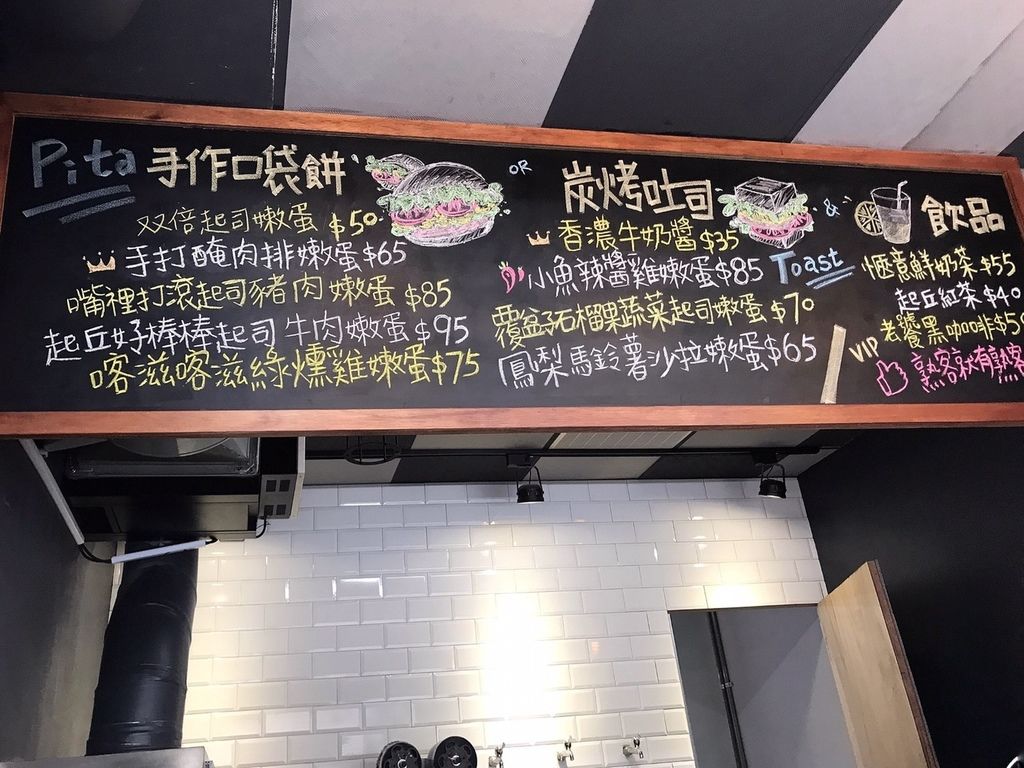 Pita 手作口袋餅
双倍起司嫩蛋 $50
手打醃肉排嫩蛋 $65
嘴裡打滾起司豬肉嫩蛋 $85
起丘好棒棒起司牛肉嫩蛋 $95
喀滋喀滋綠燻雞嫩蛋 $75
OR
炭烤吐司
Toast
香濃牛奶醬 $35
小魚辣醬雞嫩蛋 $85
覆盆子石榴果蔬菜起司嫩蛋 $70
鳳梨馬鈴薯沙拉嫩蛋 $65
&
飲品
愜意鮮奶茶 $55
起丘紅茶 $40
老饕黑咖啡 $50
VIP
熟客就有熟客